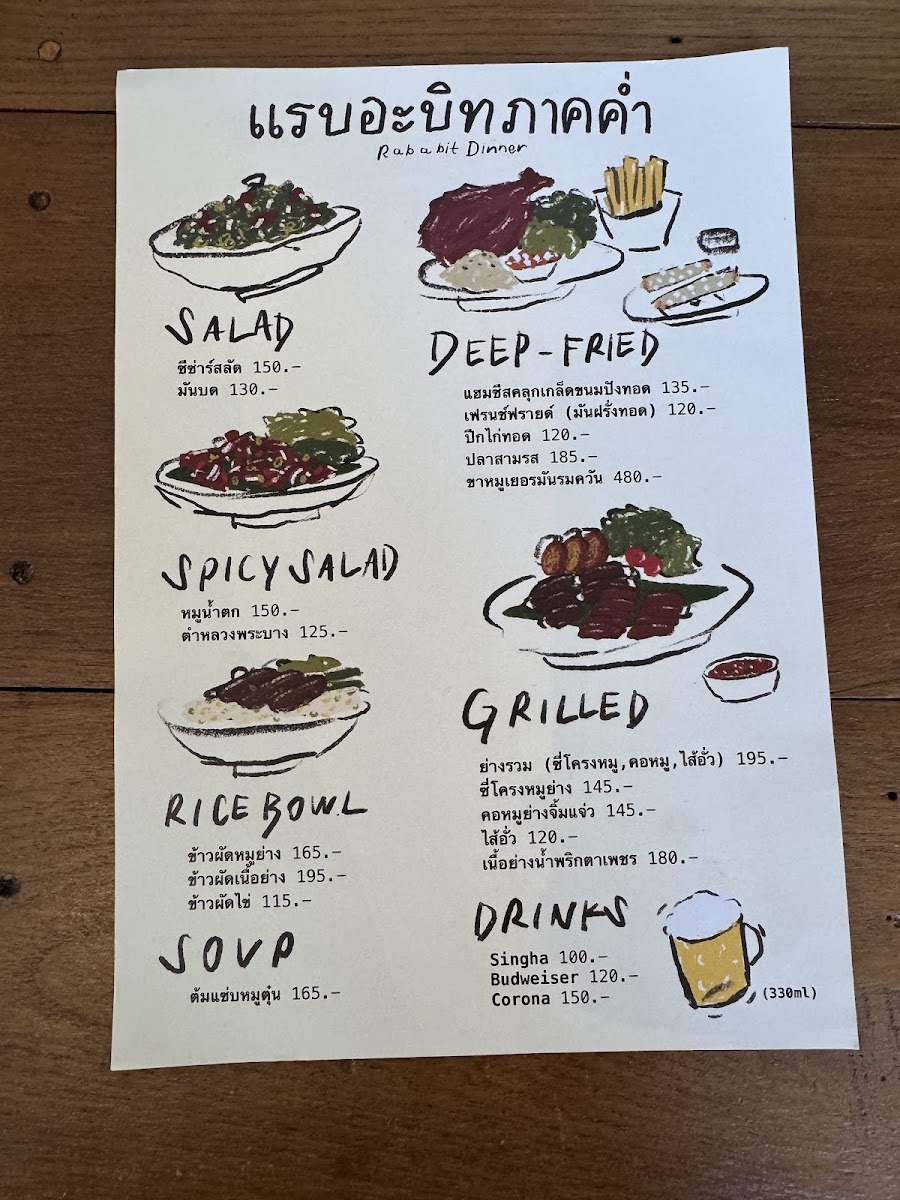 แรบอะบิทภาคค่ำ
Rababit Dinner
SALAD
ซีซ่าร์สลัด 150.-
มันบด 130.-
SPICY SALAD
หมูน้ำตก 150.-
ตำหลวงพระบาง 125.-
RICE BOWL
ข้าวผัดหมูย่าง 165.-
ข้าวผัดเนื้อย่าง 195.-
ข้าวผัดไข่ 115.-
SOUP
ต้มแซ่บหมูตุ๋น 165.-
DEEP-FRIED
แฮมชีสคลุกเกล็ดขนมปังทอด 135.-
เฟรนช์ฟรายด์ (มันฝรั่งทอด) 120.-
ปีกไก่ทอด 120.-
ปลาสามรส 185.-
ขาหมูเยอรมันรมควัน 480.-
GRILLED
ย่างรวม (ซี่โครงหมู,คอหมู,ไส้อั่ว) 195.-
ซี่โครงหมูย่าง 145.-
คอหมูย่างจิ้มแจ่ว 145.-
ไส้อั่ว 120.-
เนื้อย่างน้ำพริกตาเพชร 180.-
DRINKS
Singha 100.-
Budweiser 120.-
Corona 150.-
(330ml)